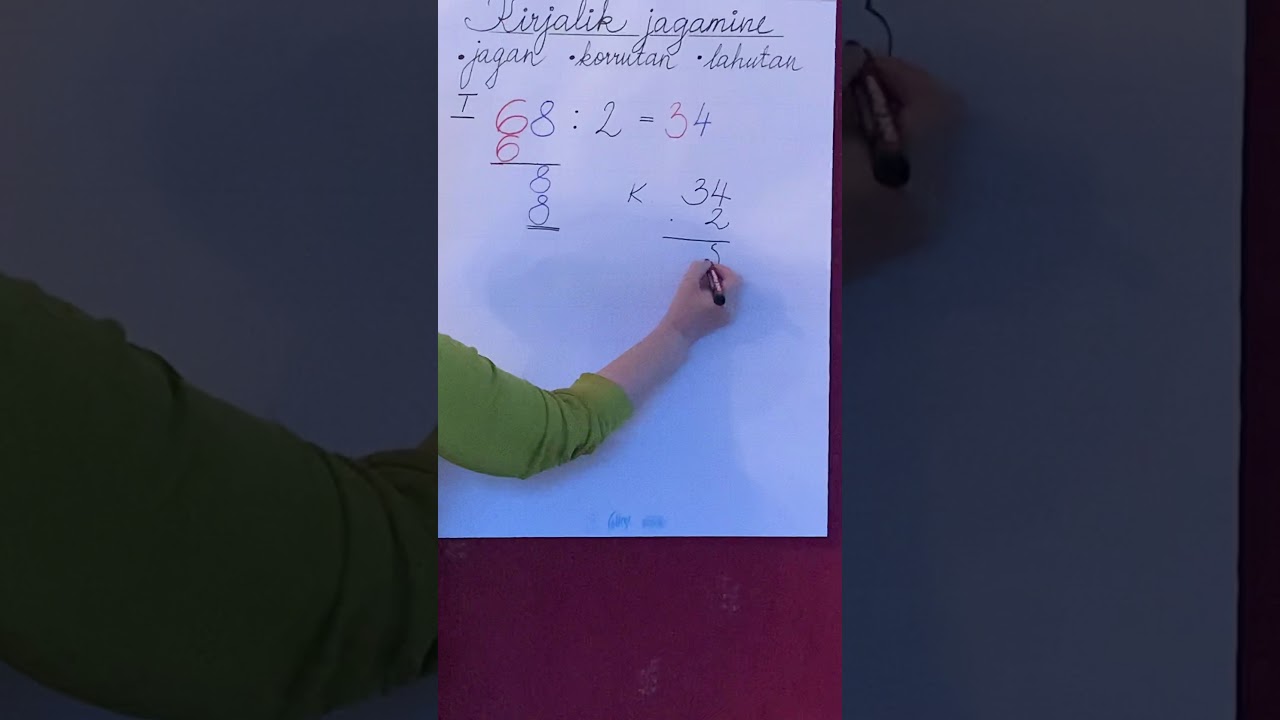 Kirjalik jagamine
• jagan • korrutan • lahutan
I 68 : 2 = 34
6
8
8
K 34
· 2